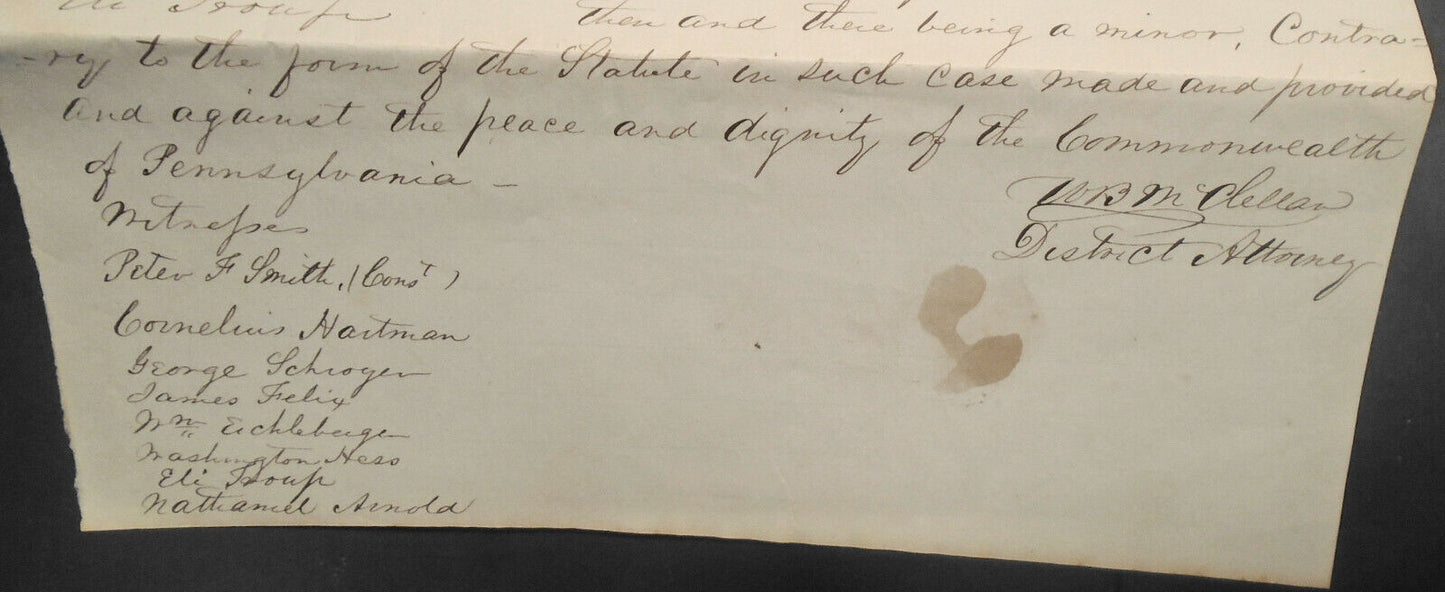 Eli Troup then and there being a minor, Contra-
-ry to the form of the Statute in such case made and provided
and against the peace and dignity of the Commonwealth
of Pennsylvania -
Witnesses
WB McClellan
District Attorney
Peter F Smith, (Const)
Cornelius Hartman
George Schroyer
James Felix
Wm Eichleberger
Washington Hess
Eli Troup
Nathaniel Arnold